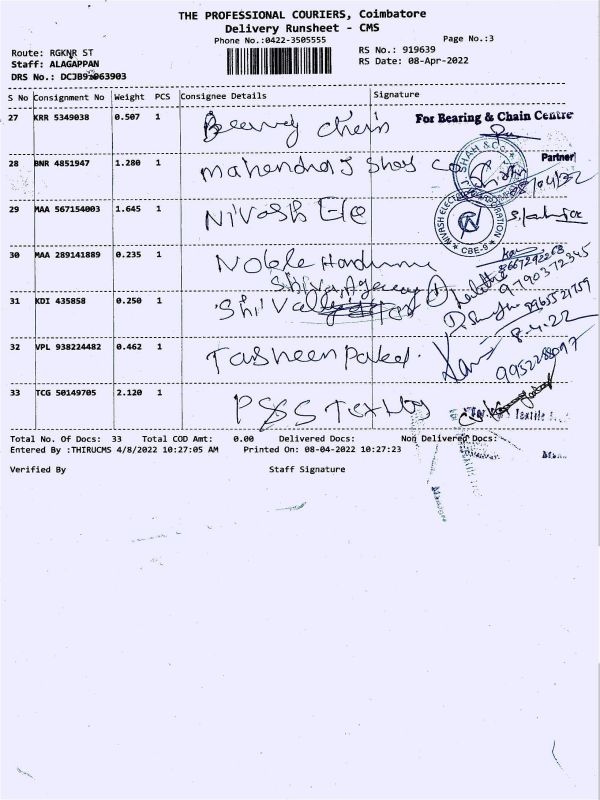 THE PROFESSIONAL COURIERS, Coimbatore
Delivery Runsheet - CMS
Phone No.:0422-3505555
Page No.:3
Route: RGKNR ST
RS No.: 919639
Staff: ALAGAPPAN
RS Date: 08-Apr-2022
DRS No.: DCJB91063903
S No Consignment No Weight PCS Consignee Details Signature
27 KRR 5349038 0.507 1 Chain For Bearing & Chain Centre
28 BNR 4851947 1.280 1 Mahendra J Shah Co Partner
SHAH & CO
29 MAA 567154003 1.645 1 Nivash Ele
NIVASH ELECTRIC CORPORATION
CBE-9
30 MAA 289141889 0.235 1 Noble
8667292268
Shiva Agency
9790372345
31 KDI 435858 0.250 1 Shi Valley
9965521759
8.4.22
32 VPL 938224482 0.462 1 Tasheen
9952288097
33 TCG 50149705 2.120 1 PSS
Textile
Total No. Of Docs: 33 Total COD Amt: 0.00 Delivered Docs: Non Delivered Docs:
Entered By :THIRUCMS 4/8/2022 10:27:05 AM Printed On: 08-04-2022 10:27:23
Verified By Staff Signature